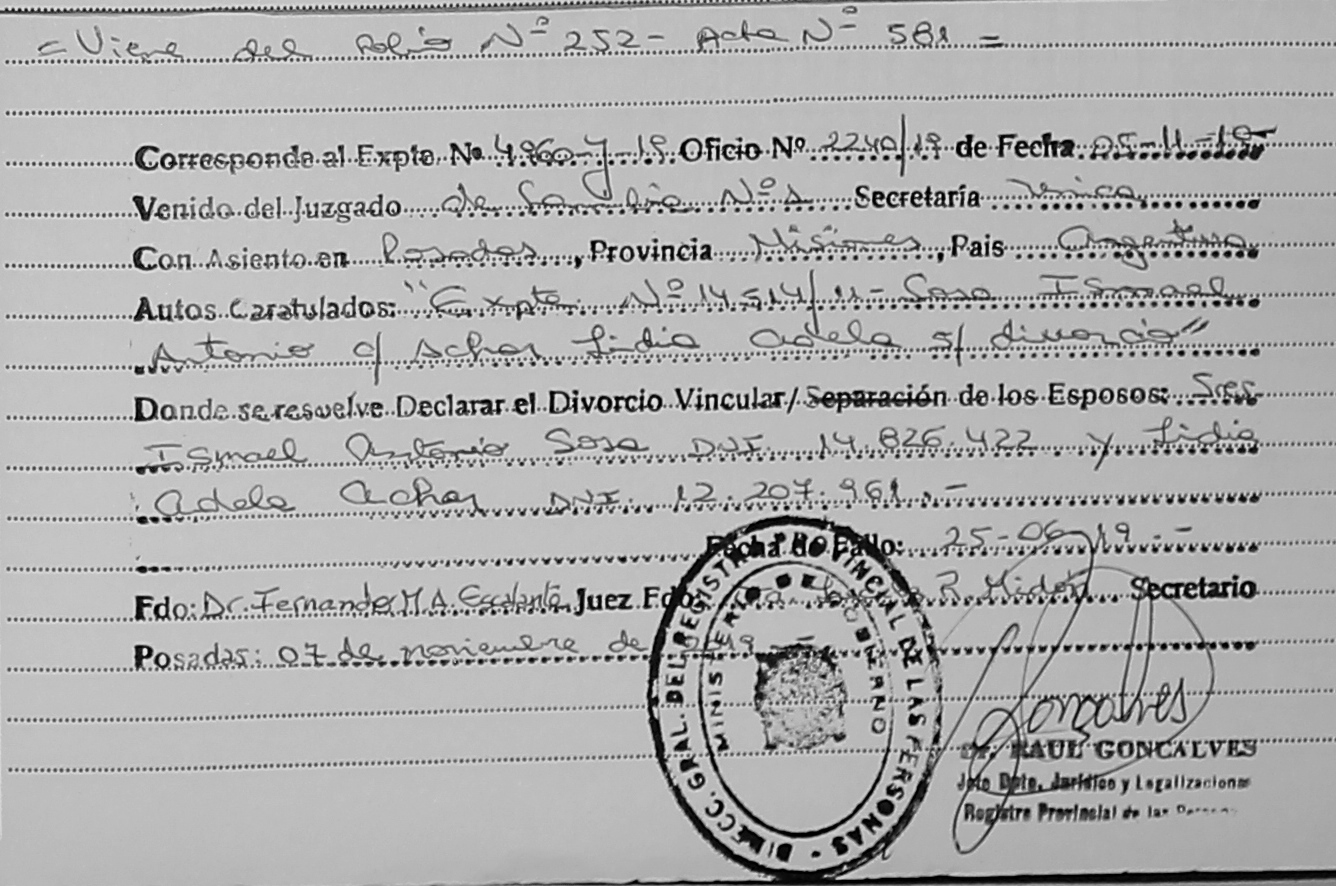 = Viene del folio Nº 252 - Acta Nº 581 =
Corresponde al Expte. Nº 4960-Y-19 Oficio Nº 2240/19 de Fecha 05-11-19
Venido del Juzgado de Familia Nº 1 Secretaría Única
Con Asiento en Posadas, Provincia Misiones, Pais Argentina
Autos Caratulados: "Expte. Nº 14514/11 - Sosa Ismael
Antonio c/ Achar Lidia Adela s/ divorcio"
Donde se resuelve Declarar el Divorcio Vincular/ Separación de los Esposos: Sres
Ismael Antonio Sosa DNI. 14.826.422 y Lidia
Adela Achar DNI. 12.207.961.-
Fecha de Fallo: 25-06-19.-
Fdo: Dr. Fernando M.A. Escalante Juez Fdo: R. Secretario
Posadas: 07 de noviembre de 2019
DIRECC. GRAL. DEL REGISTRO PROVINCIAL DE LAS PERSONAS
MINISTERIO DE GOBIERNO
Gonçalves
Dr. RAUL GONCALVES
Jefe Dpto. Jurídico y Legalizaciones
Registro Provincial de las Personas